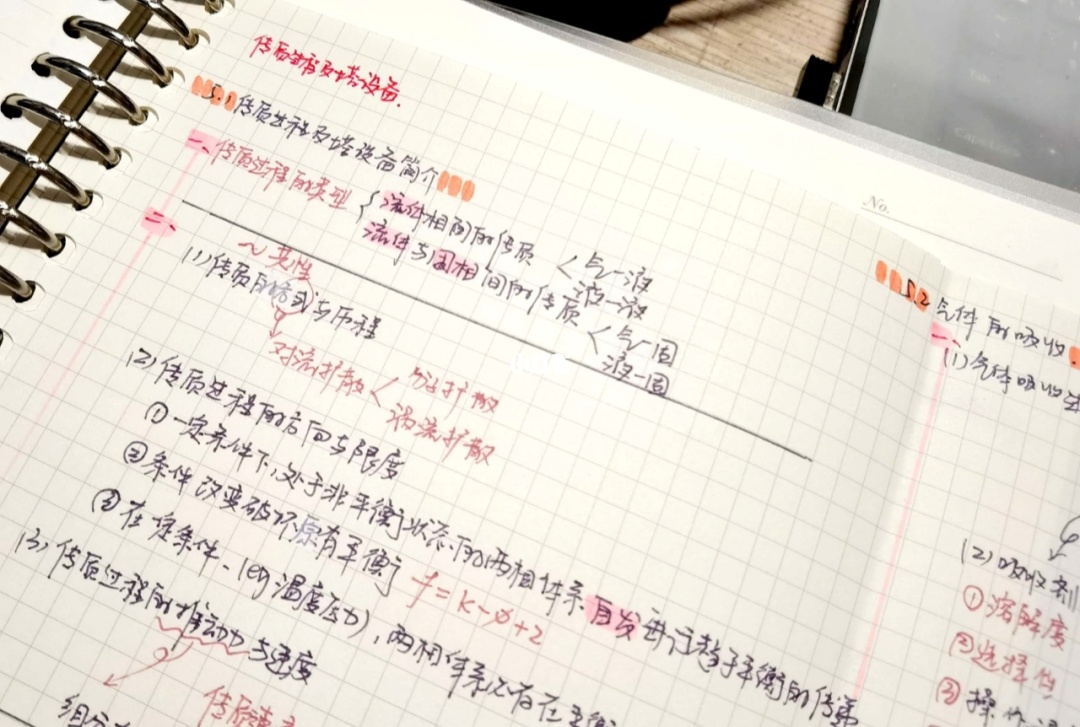 传质过程及塔设备.
5.1 传质过程及塔设备简介
一、传质过程的类型 { 流体相间的传质 < 气-液
液-液
流体与固相间的传质 < 气-固
液-固
二、 ~共性
(1) 传质的方式与历程
对流扩散 < 分子扩散
涡流扩散
(2) 传质过程的方向与限度
① 一定条件下,处于非平衡状态的两相体系自发进行趋于平衡的传递
② 条件改变破坏原有平衡
③ 在一定条件、(eg 温度压力),两相体系必存在平衡
f=k-φ+2
(3) 传质过程的推动力与速度
组分
传质速
No.
5.2 气体的吸收
一、
(1) 气体吸收过
(2) 吸收剂
① 溶解度
② 选择性
③ 操作